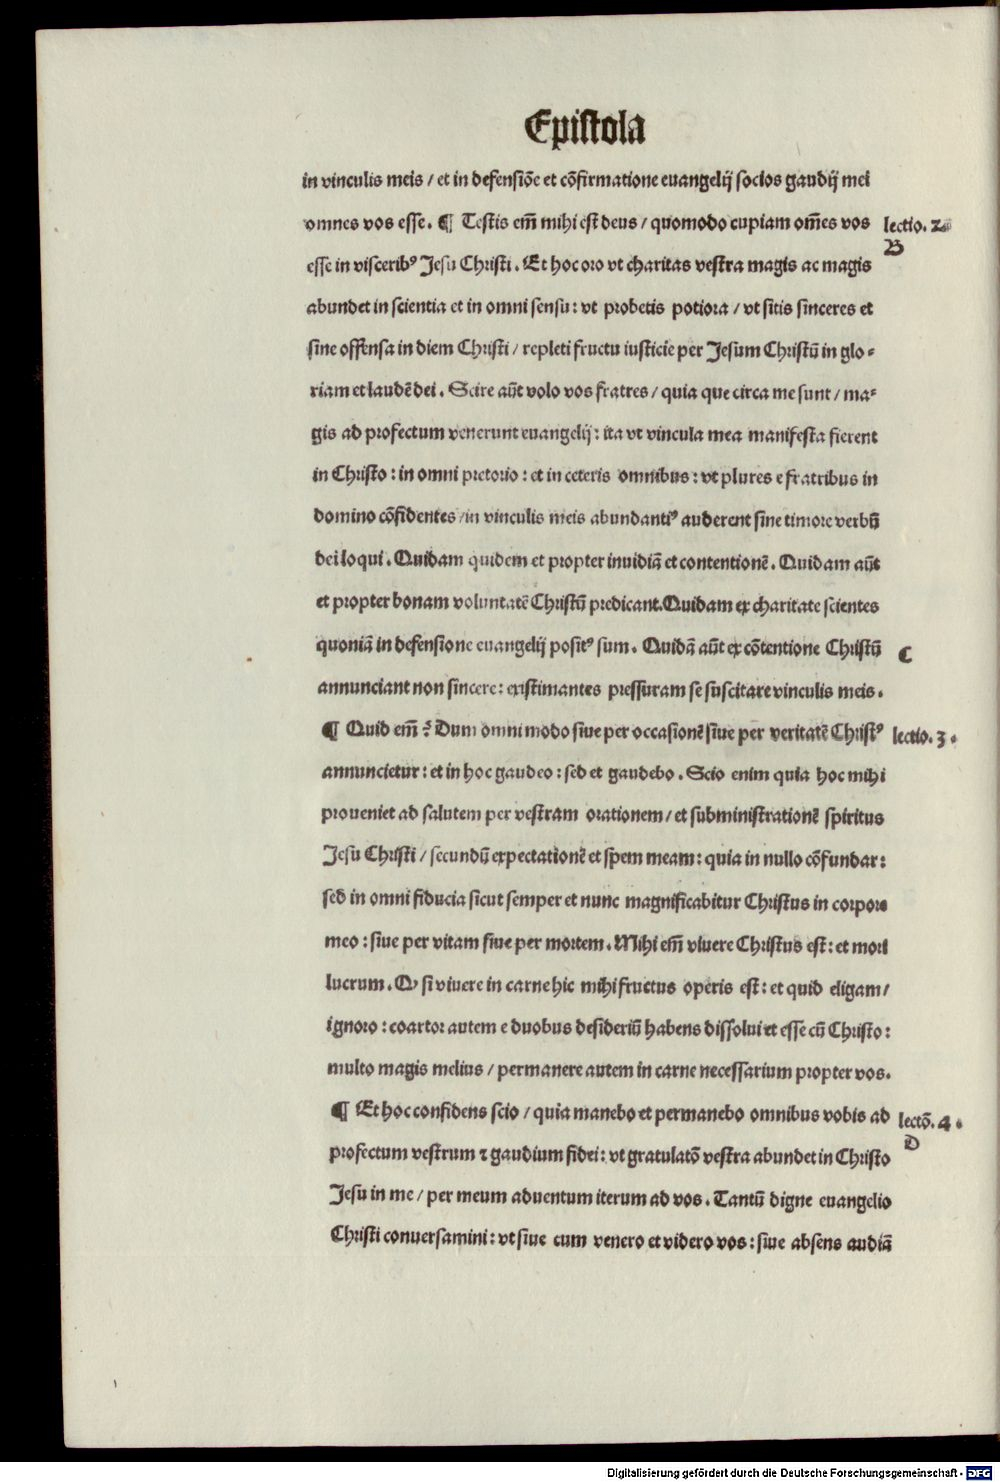 Epistola
in vinculis meis / et in defensiõe et cõfirmatione euangelij socios gaudij mei
omnes vos esse . ¶ Testis em̃ mihi est deus / quomodo cupiam om̃es vos
lectio. 2.
B
esse in visceribꝰ Jesu Christi . Et hoc oro vt charitas vestra magis ac magis
abundet in scientia et in omni sensu : vt probetis potiora / vt sitis sinceres et
sine offensa in diem Christi / repleti fructu iusticie per Jesum Christũ in glo⸗
riam et laudẽ dei . Scire aũt volo vos fratres / quia que circa me sunt / ma⸗
gis ad profectum venerunt euangelij : ita vt vincula mea manifesta fierent
in Christo : in omni pretorio : et in ceteris omnibus : vt plures e fratribus in
domino cõfidentes / in vinculis meis abundantiꝰ auderent sine timore verbũ
dei loqui . Quidam quidem et propter inuidiã et contentionẽ . Quidam aũt
et propter bonam voluntatẽ Christũ predicant. Quidam ex charitate scientes
quoniã in defensione euangelij positꝰ sum . Quidã aũt ex cõtentione Christũ
C
annunciant non sincere : existimantes pressuram se suscitare vinculis meis .
¶ Quid em̃ ? Dum omni modo siue per occasionẽ siue per veritatẽ Christꝰ
lectio. 3 .
annuncietur : et in hoc gaudeo : sed et gaudebo . Scio enim quia hoc mihi
proueniet ad salutem per vestram orationem / et subministrationẽ spiritus
Jesu Christi / secundũ expectationẽ et spem meam : quia in nullo cõfundar :
sed in omni fiducia sicut semper et nunc magnificabitur Christus in corpore
meo : siue per vitam siue per mortem . Mihi em̃ viuere Christus est : et mori
lucrum . Qꝫ si viuere in carne hic mihi fructus operis est : et quid eligam /
ignoro : coartor autem e duobus desideriũ habens dissolui et esse cũ Christo :
multo magis melius / permanere autem in carne necessarium propter vos .
¶ Et hoc confidens scio / quia manebo et permanebo omnibus vobis ad
lectõ. 4 .
D
profectum vestrum ⁊ gaudium fidei : vt gratulatõ vestra abundet in Christo
Jesu in me / per meum aduentum iterum ad vos . Tantũ digne euangelio
Christi conuersamini : vt siue cum venero et videro vos : siue absens audiã
Digitalisierung gefördert durch die Deutsche Forschungsgemeinschaft - DFG